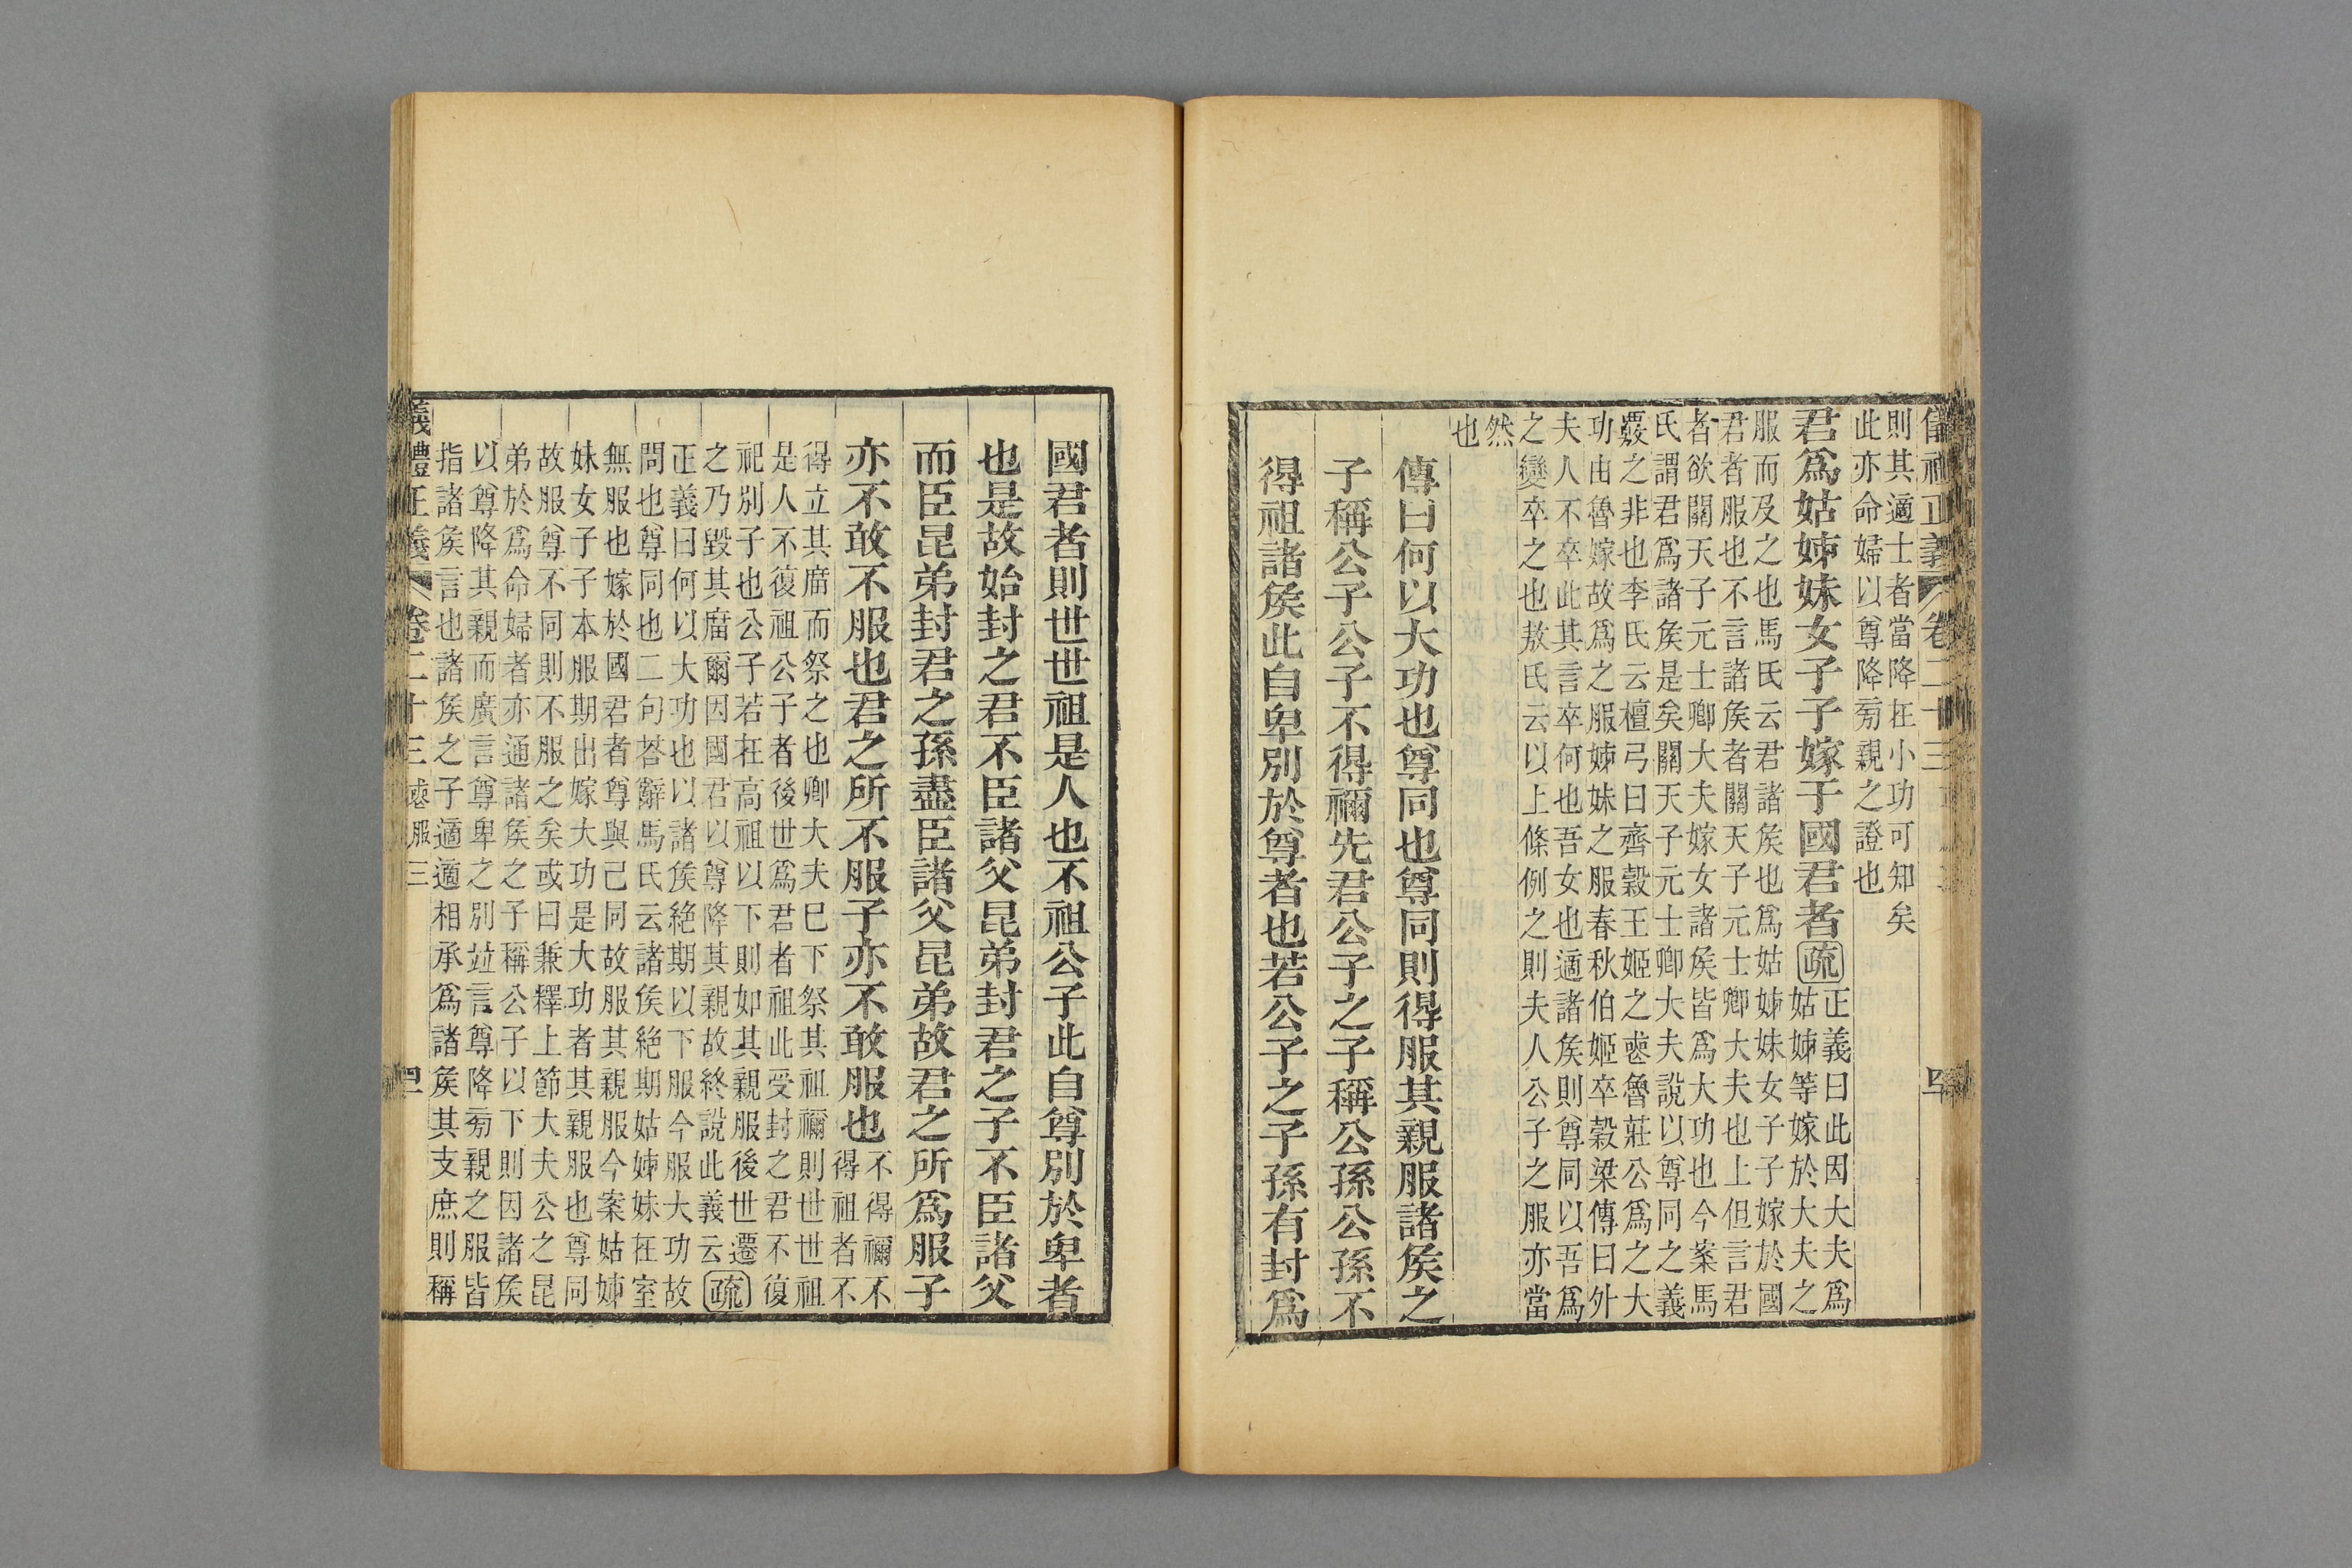 儀禮正義 卷二十三
則其適士者當降在小功可知矣
此亦命婦以尊降㫄親之證也
君爲姑姊妹女子子嫁于國君者疏
正義曰此因大夫爲
姑姊等嫁於大夫之
服而及之也馬氏云君諸矦也爲姑姊妹女子子嫁於國
君者服也不言諸矦者關天子元士卿大夫也上但言君
者欲關天子元士卿大夫嫁女諸矦皆爲大功也今案馬
氏謂君爲諸矦是矣關天子元士卿大夫說以尊同之義
覈之非也李氏云檀弓曰齊穀王姬之喪魯莊公爲之大
功由魯嫁故爲之服姊妹之服春秋伯姬卒穀梁傳曰外
夫人不卒此其言卒何也吾女也適諸矦則尊同以吾爲
之變卒之也敖氏云以上條例之則夫人公子之服亦當
然
也
傳曰何以大功也尊同也尊同則得服其親服諸矦之
子稱公子公子不得禰先君公子之子稱公孫公孫不
得祖諸矦此自卑別於尊者也若公子之子孫有封爲
國君者則世世祖是人也不祖公子此自尊別於卑者
也是故始封之君不臣諸父昆弟封君之子不臣諸父
而臣昆弟封君之孫盡臣諸父昆弟故君之所爲服子
亦不敢不服也君之所不服子亦不敢服也
不得禰不
得祖者不
得立其廟而祭之也卿大夫已下祭其祖禰則世世祖
是人不復祖公子者後世爲君者祖此受封之君不復
祀別子也公子若在高祖以下則如其親服後世遷
之乃毀其廟爾因國君以尊降其親故終說此義云疏
正義曰何以大功也以諸矦絕期以下服今服大功故
問也尊同也二句荅辭馬氏云諸矦絕期姑姊妹在室
無服也嫁於國君者尊與己同故服其親服今案姑姊
妹女子子本服期出嫁大功是大功者其親服也尊同
故服尊不同則不服之矣或曰兼釋上節大夫公之昆
弟於爲命婦者亦通諸矦之子稱公子以下則因諸矦
以尊降其親而廣言尊卑之別竝言尊降㫄親之服皆
指諸矦言也諸矦之子適適相承爲諸矦其支庶則稱
儀禮正義 卷二十三 喪服三